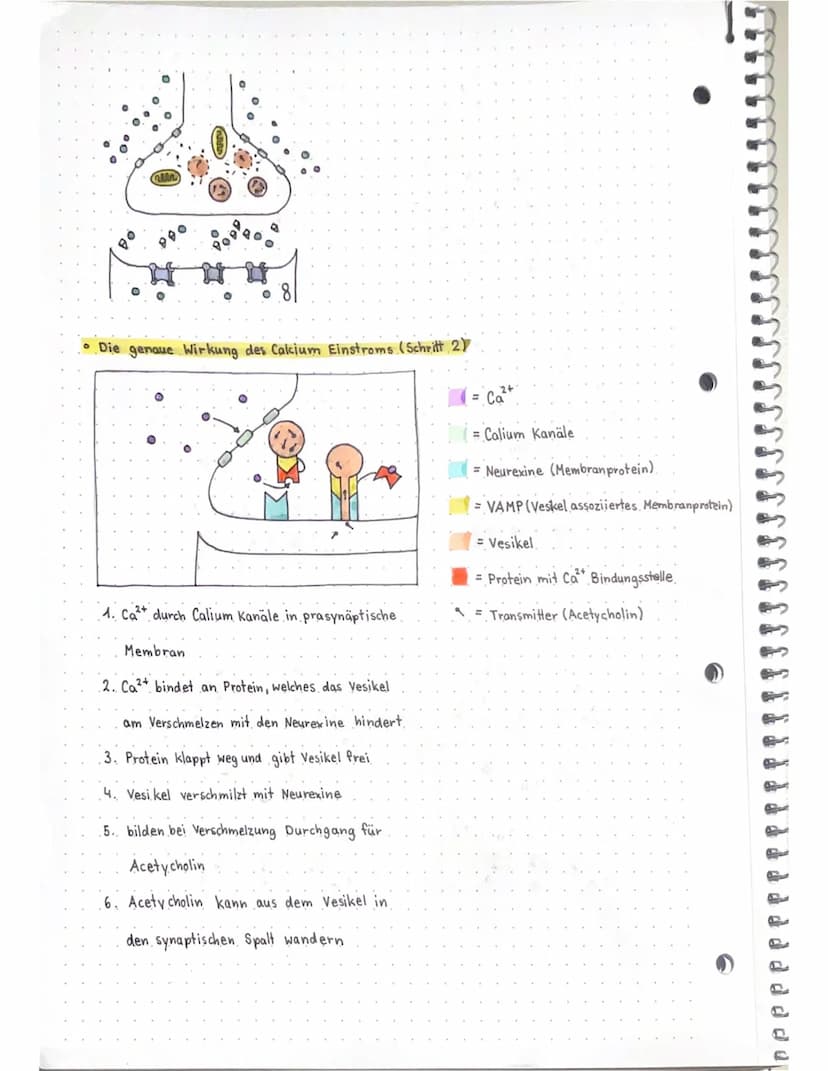 8
• Die genaue Wirkung des Calcium Einstroms (Schritt 2)
= Ca²⁺
= Calium Kanäle
= Neurexine (Membranprotein)
= VAMP (Veskel assoziiertes Membranprotein)
= Vesikel
= Protein mit Ca²⁺ Bindungsstelle
= Transmitter (Acetycholin)
1. Ca²⁺ durch Calium Kanäle in präsynäptische
Membran
2. Ca²⁺ bindet an Protein, welches das Vesikel
am Verschmelzen mit den Neurexine hindert
3. Protein klappt weg und gibt Vesikel frei
4. Vesikel verschmilzt mit Neurexine
5. bilden bei Verschmelzung Durchgang für
Acetycholin
6. Acetycholin kann aus dem Vesikel in
den synaptischen Spalt wandern